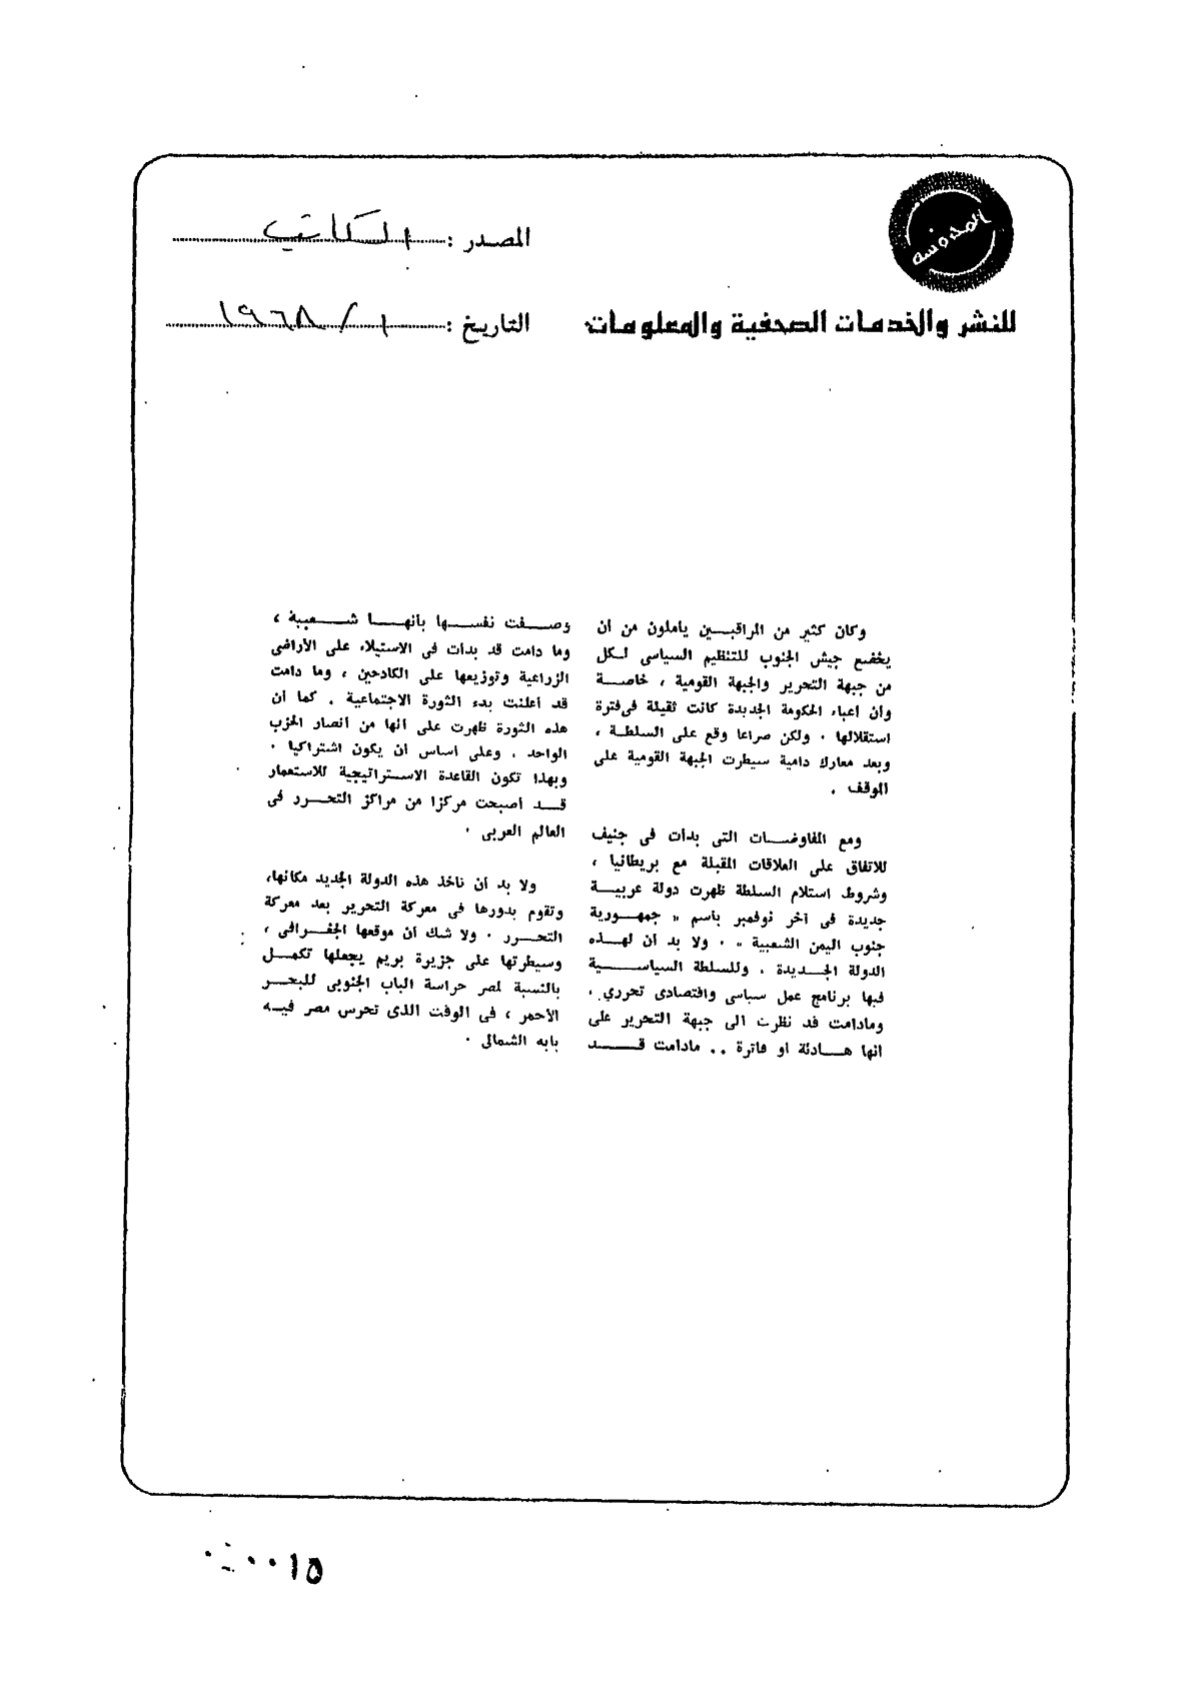 المحروسة
للنشر والخدمات الصحفية والمعلومات
المصدر : الكاتب
التاريخ : ١ / ١٩٦٨
وكان كثير من المراقبين ياملون من ان
يخضع جيش الجنوب للتنظيم السياسى لكل
من جبهة التحرير والجبهة القومية ، خاصة
وان اعباء الحكومة الجديدة كانت ثقيلة فى فترة
استقلالها . ولكن صراعا وقع على السلطة ،
وبعد معارك دامية سيطرت الجبهة القومية على
الموقف .
ومع المفاوضات التى بدات فى جنيف
للاتفاق على العلاقات المقبلة مع بريطانيا ،
وشروط استلام السلطة ظهرت دولة عربية
جديدة فى آخر نوفمبر باسم « جمهورية
جنوب اليمن الشعبية » . ولا بد ان لهذه
الدولة الجديدة . وللسلطة السياسية
فيها برنامج عمل سياسى واقتصادى تحررى .
ومادامت قد نظرت الى جبهة التحرير على
انها هادئة او فاترة .. مادامت قد
وصفت نفسها بانها شعبية ،
وما دامت قد بدات فى الاستيلاء على الأراضى
الزراعية وتوزيعها على الكادحين ، وما دامت
قد اعلنت بدء الثورة الاجتماعية . كما ان
هذه الثورة ظهرت على انها من انصار الحزب
الواحد . وعلى اساس ان يكون اشتراكيا .
وبهذا تكون القاعدة الاستراتيجية للاستعمار
قد اصبحت مركزا من مراكز التحرر فى
العالم العربى .
ولا بد ان ناخذ هذه الدولة الجديد مكانها،
وتقوم بدورها فى معركة التحرير بعد معركة
التحرر . ولا شك ان موقعها الجغرافى ،
وسيطرتها على جزيرة بريم يجعلها تكمل
بالنسبة لمصر حراسة الباب الجنوبى للبحر
الأحمر ، فى الوقت الذى تحرس مصر فيه
بابه الشمالى .